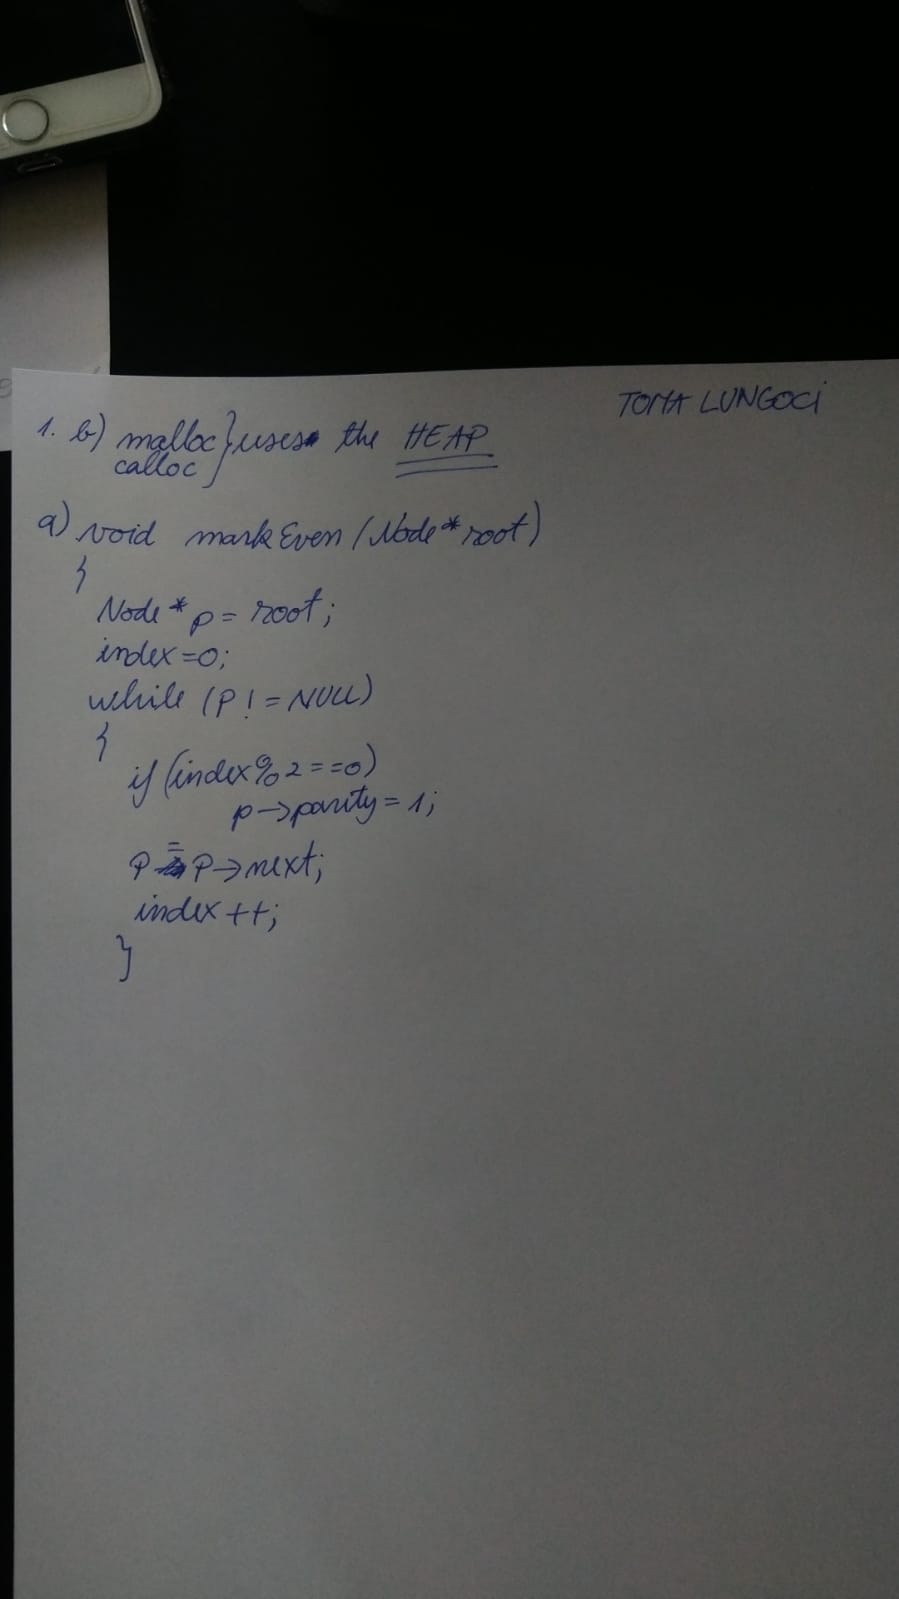 TOMA LUNGOCI
1. b) malloc } uses the HEAP
calloc
a) void markEven (Node* root)
{
Node* p = root;
index=0;
while (P != NULL)
{
if (index%2==0)
p->parity = 1;
P = P->next;
index ++;
}